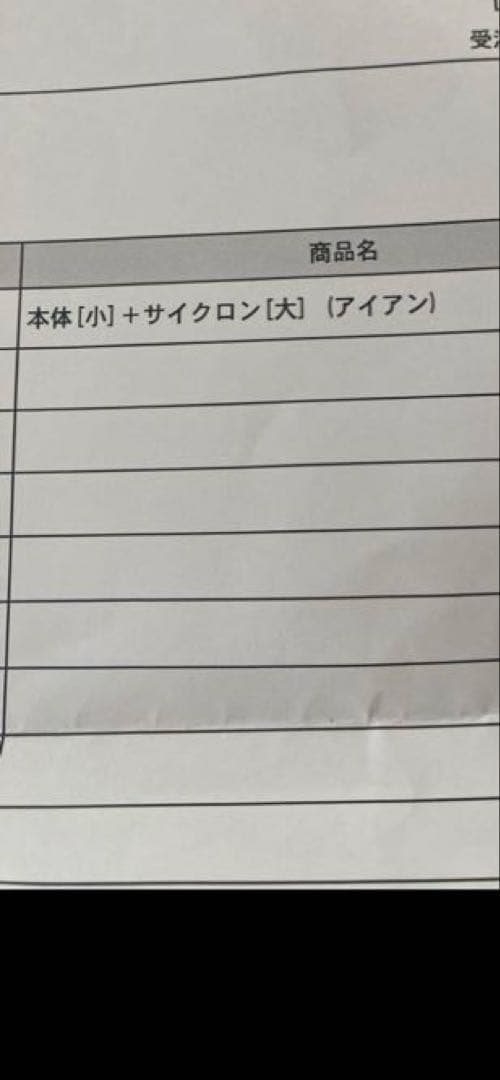 商品名
本体[小]+サイクロン[大] (アイアン)